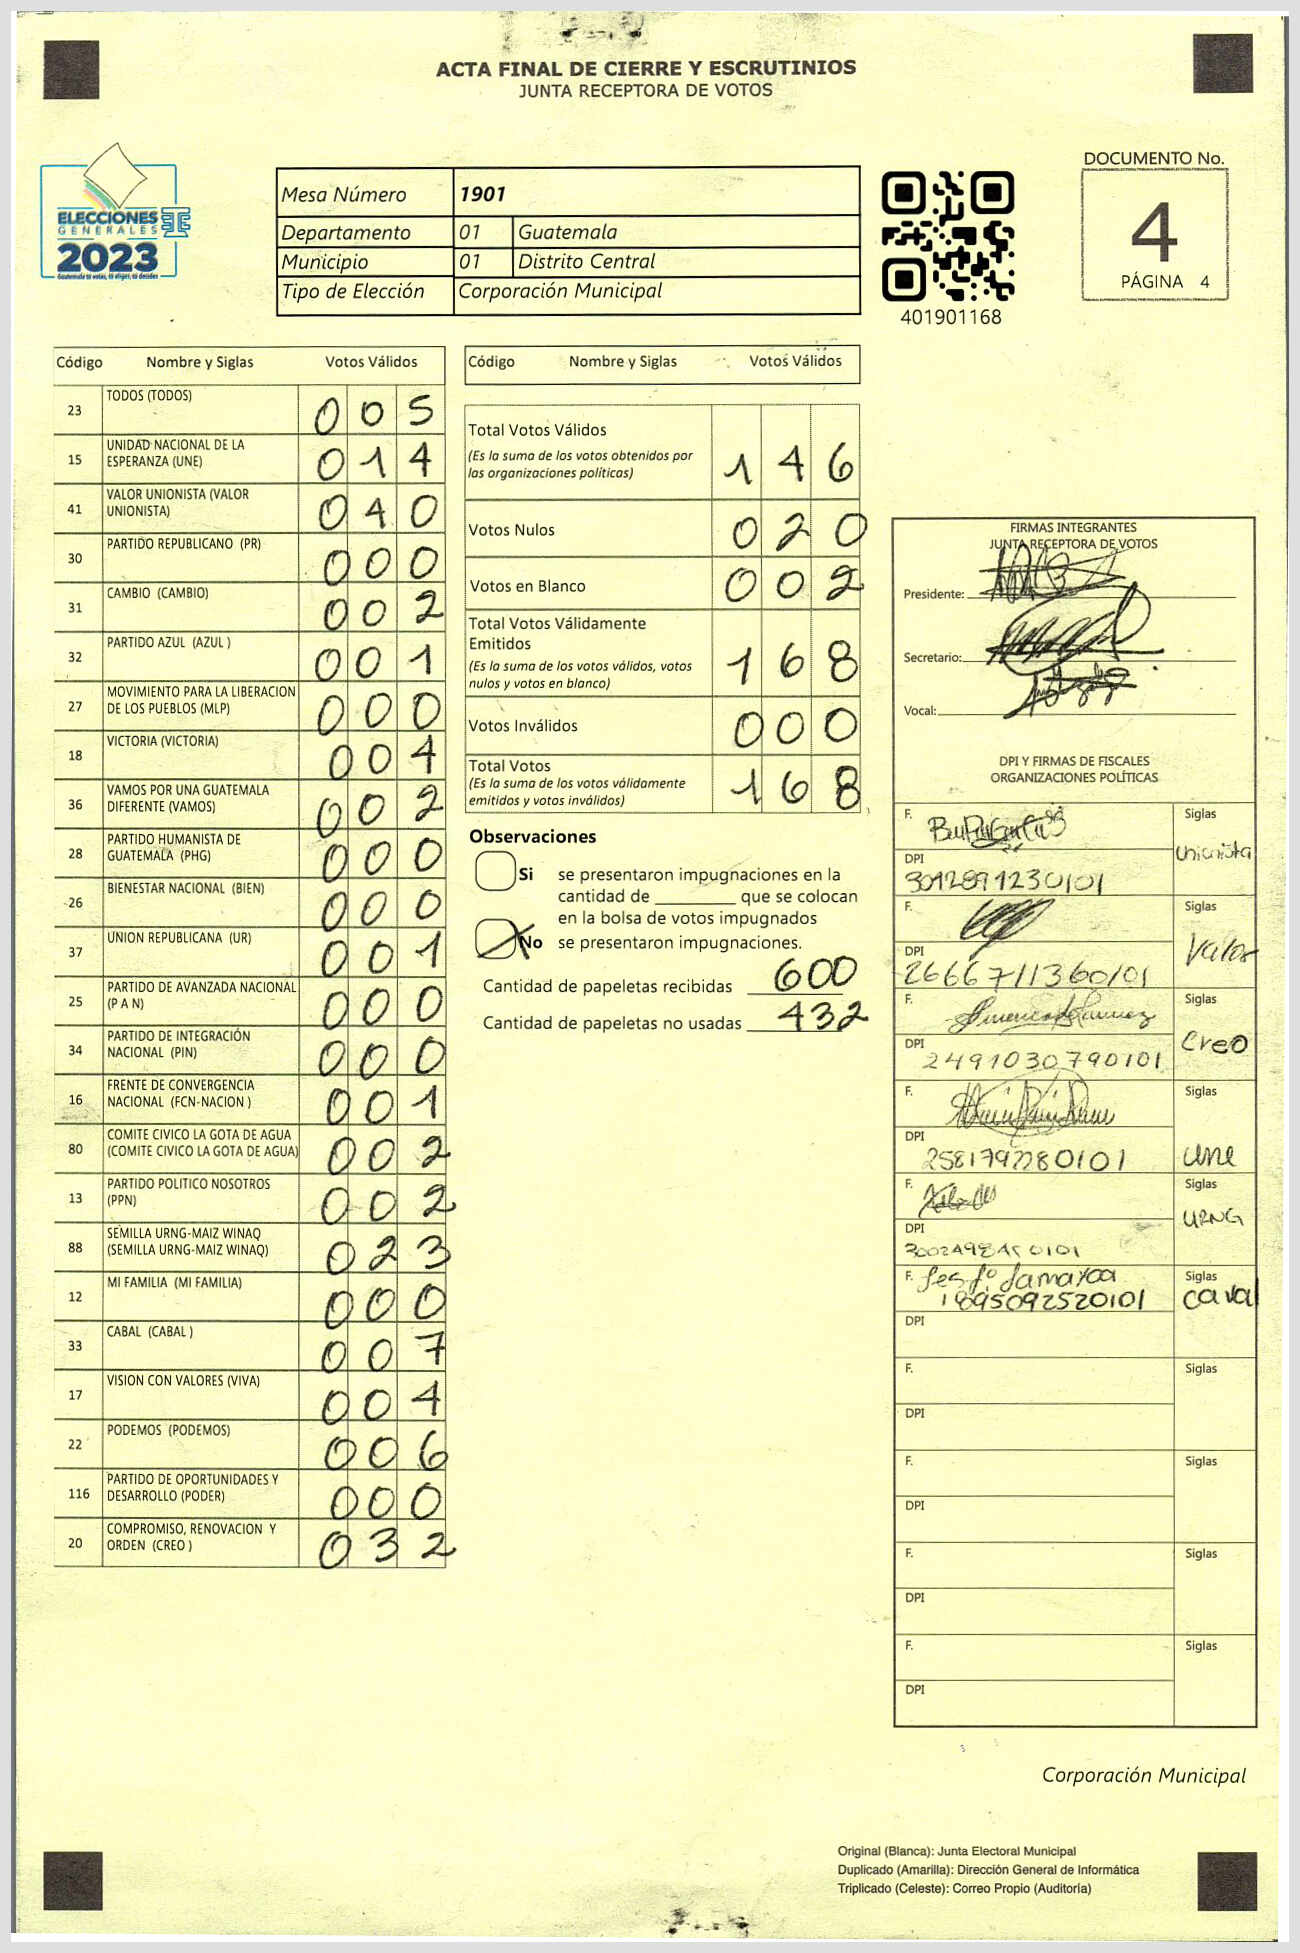 ACTA FINAL DE CIERRE Y ESCRUTINIOS
JUNTA RECEPTORA DE VOTOS
ELECCIONES
GENERALES
2023
Guatemala tú votas, tú eliges, tú decides
Mesa Número 1901
Departamento 01 Guatemala
Municipio 01 Distrito Central
Tipo de Elección Corporación Municipal
401901168
DOCUMENTO No.
4
PÁGINA 4
Código Nombre y Siglas Votos Válidos
23 TODOS (TODOS) 005
15 UNIDAD NACIONAL DE LA ESPERANZA (UNE) 014
41 VALOR UNIONISTA (VALOR UNIONISTA) 040
30 PARTIDO REPUBLICANO (PR) 000
31 CAMBIO (CAMBIO) 002
32 PARTIDO AZUL (AZUL ) 001
27 MOVIMIENTO PARA LA LIBERACION DE LOS PUEBLOS (MLP) 000
18 VICTORIA (VICTORIA) 004
36 VAMOS POR UNA GUATEMALA DIFERENTE (VAMOS) 002
28 PARTIDO HUMANISTA DE GUATEMALA (PHG) 000
26 BIENESTAR NACIONAL (BIEN) 000
37 UNION REPUBLICANA (UR) 001
25 PARTIDO DE AVANZADA NACIONAL (P A N) 000
34 PARTIDO DE INTEGRACIÓN NACIONAL (PIN) 000
16 FRENTE DE CONVERGENCIA NACIONAL (FCN-NACION ) 001
80 COMITE CIVICO LA GOTA DE AGUA (COMITE CIVICO LA GOTA DE AGUA) 002
13 PARTIDO POLITICO NOSOTROS (PPN) 002
88 SEMILLA URNG-MAIZ WINAQ (SEMILLA URNG-MAIZ WINAQ) 023
12 MI FAMILIA (MI FAMILIA) 000
33 CABAL (CABAL ) 007
17 VISION CON VALORES (VIVA) 004
22 PODEMOS (PODEMOS) 006
116 PARTIDO DE OPORTUNIDADES Y DESARROLLO (PODER) 000
20 COMPROMISO, RENOVACION Y ORDEN (CREO ) 032
Código Nombre y Siglas Votos Válidos
Total Votos Válidos
(Es la suma de los votos obtenidos por las organizaciones políticas) 146
Votos Nulos 020
Votos en Blanco 002
Total Votos Válidamente Emitidos
(Es la suma de los votos válidos, votos nulos y votos en blanco) 168
Votos Inválidos 000
Total Votos
(Es la suma de los votos válidamente emitidos y votos inválidos) 168
Observaciones
Si se presentaron impugnaciones en la
cantidad de ________ que se colocan
en la bolsa de votos impugnados
No se presentaron impugnaciones.
Cantidad de papeletas recibidas 600
Cantidad de papeletas no usadas 432
FIRMAS INTEGRANTES
JUNTA RECEPTORA DE VOTOS
Presidente:
Secretario:
Vocal:
DPI Y FIRMAS DE FISCALES
ORGANIZACIONES POLÍTICAS
F. Siglas
Unionista
DPI
3012891230101
F. Siglas
Valor
DPI
2666711360101
F. Siglas
Creo
DPI
2491030790101
F. Siglas
DPI
2581792280101 une
F. Siglas
URNG
DPI
F. Siglas
1895092520101 caval
DPI
F. Siglas
DPI
F. Siglas
DPI
F. Siglas
DPI
F. Siglas
DPI
Corporación Municipal
Original (Blanca): Junta Electoral Municipal
Duplicado (Amarilla): Dirección General de Informática
Triplicado (Celeste): Correo Propio (Auditoría)